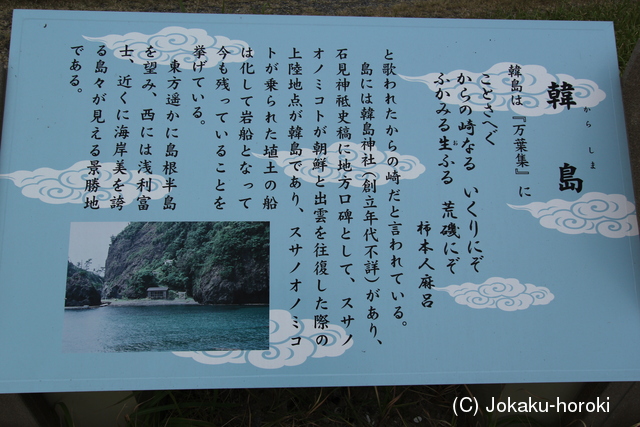 韓島
からしま
韓島は『万葉集』に
ことさへぐ
からの崎なる いくりにぞ
ふかみる生ふる 荒磯にぞ
お
柿本人麻呂
と歌われたからの崎だと言われている。
島には韓島神社(創立年代不詳)があり、
石見神祗史稿に地方口碑として、スサノ
オノミコトが朝鮮と出雲を往復した際の
上陸地点が韓島であり、スサノオノミコ
トが乗られた埴土の船
は化して岩船となって
今も残っていることを
挙げている。
東方遥かに島根半島
を望み、西には浅利富
士、近くに海岸美を誇
る島々が見える景勝地
である。
(C) Jokaku-horoki